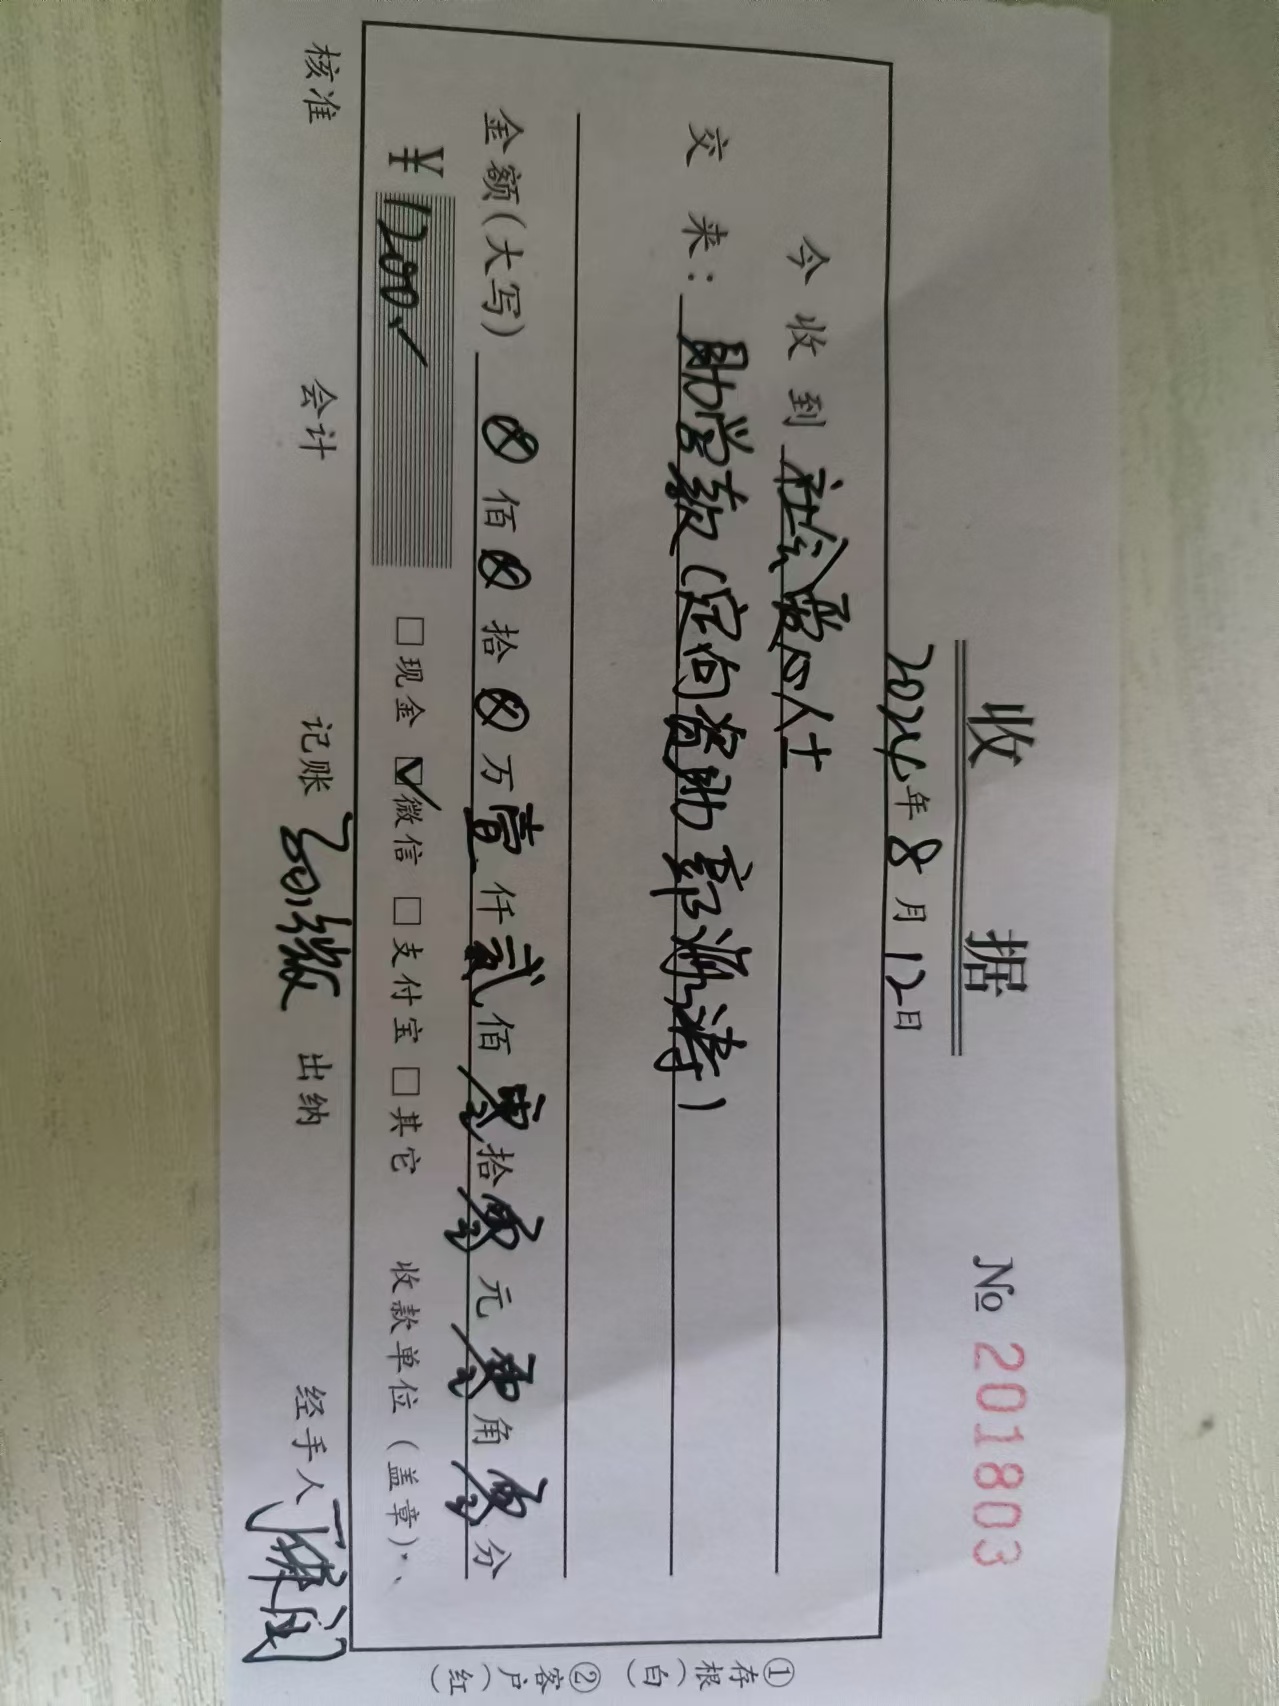 收 据
№ 201803
2024年8月12日
今收到 社会爱心人士
交来：助学款（定向资助郭源涛）
金额（大写） ⊗佰⊗拾⊗万壹仟贰佰零拾零元零角零分
¥ 1200 □现金 ☑微信 □支付宝 □其它 收款单位（盖章）
核准 会计 记账 出纳 经手人
①存根（白） ②客户（红）